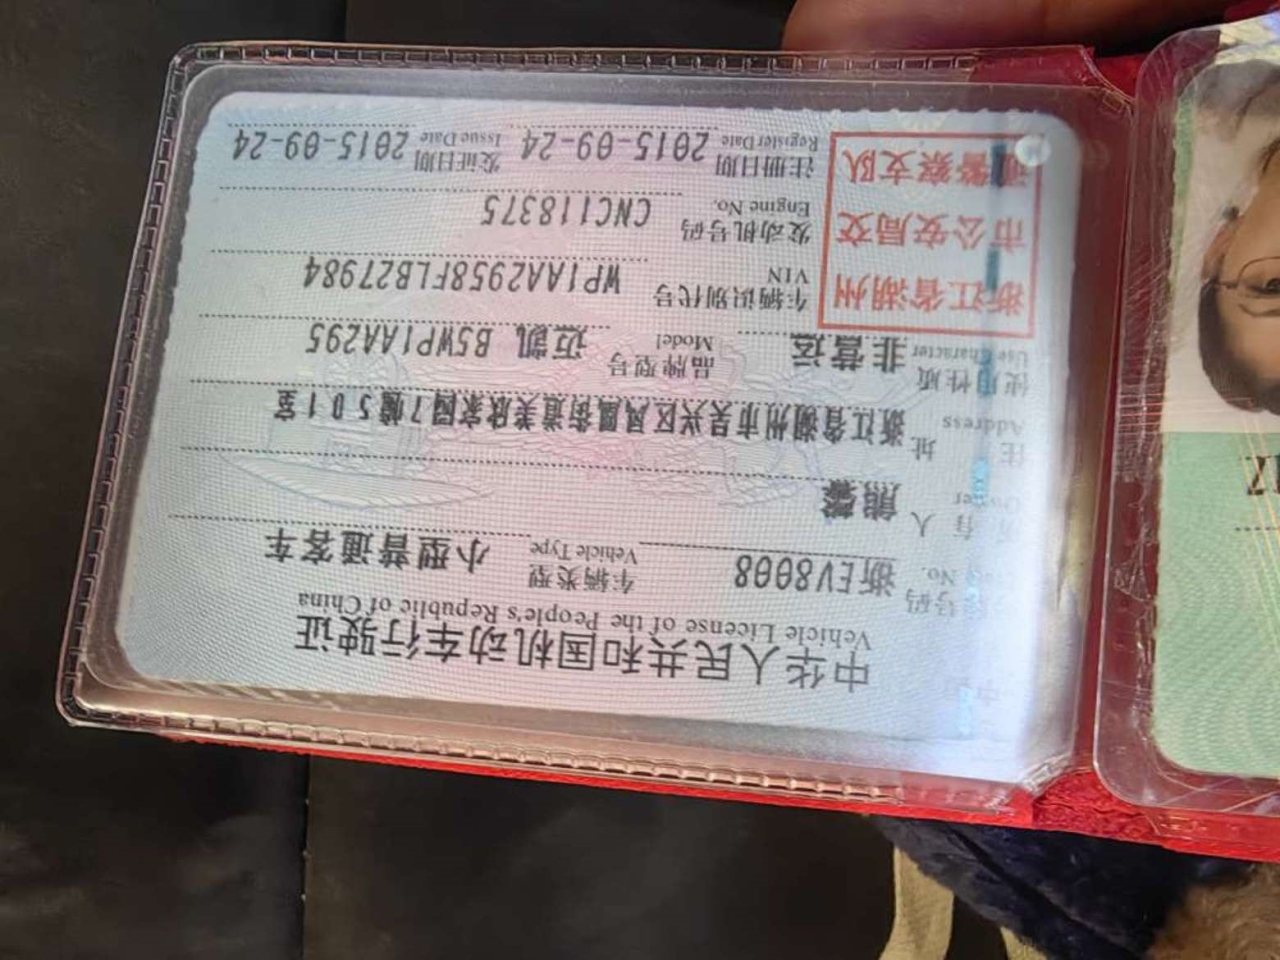 中华人民共和国机动车行驶证
Vehicle License of the People's Republic of China
号码 浙EV8008 车辆类型 小型普通客车
No. Vehicle Type
所有人 熊馨
Owner
住址 浙江省湖州市吴兴区凤凰街道美欣家园7幢501室
Address
使用性质 非营运 品牌型号 迈凯 B5WP1AA295
Use Character Model
浙江省湖州
市公安局交
通警察支队
车辆识别代号 WP1AA2958FLB27984
VIN
发动机号码 CNC118375
Engine No.
注册日期 2015-09-24 发证日期 2015-09-24
Register Date Issue Date